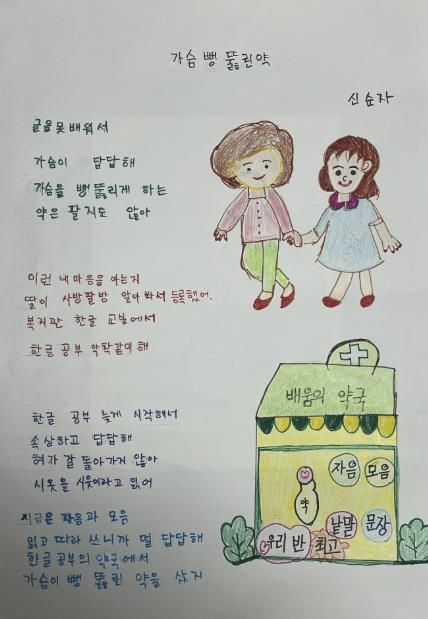 가슴 뻥 뚫린약
신순자
글을 못 배워서
가슴이 답답해
가슴을 뻥 뚫리게 하는
약은 팔지도 않아
이런 내 마음을 아는지
딸이 사방팔방 알아봐서 등록했어.
복지관 한글 교실에서
한글 공부 악착같이 해
한글 공부 늦게 시작해서
속상하고 답답해
혀가 잘 돌아가지 않아
시옷을 시옷이라고 읽어
지금은 자음과 모음
읽고 따라 쓰니까 덜 답답해
한글 공부의 약국에서
가슴이 뻥 뚫린 약을 샀지
배움의 약국
자음 모음
약
낱말 문장
우리 반 최고